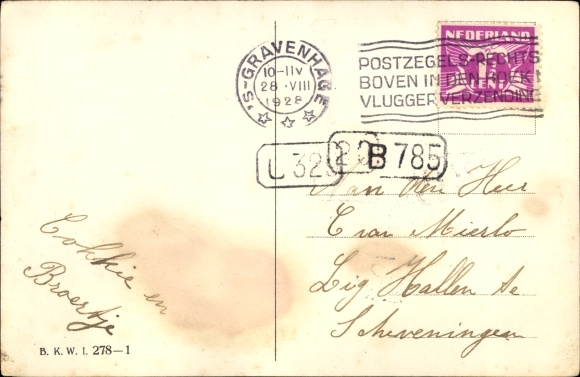 'S-GRAVENHAGE
10-11V
28.VIII
1928
POSTZEGELS-RECHTS
BOVEN IN DEN HOEK!
VLUGGER VERZENDING
NEDERLAND
L 32
22
B 785
Aan den Heer
C van Mierlo
Zig Hallen Se
Scheveningen
Cokkie en
Broertje
B. K. W. I. 278-1